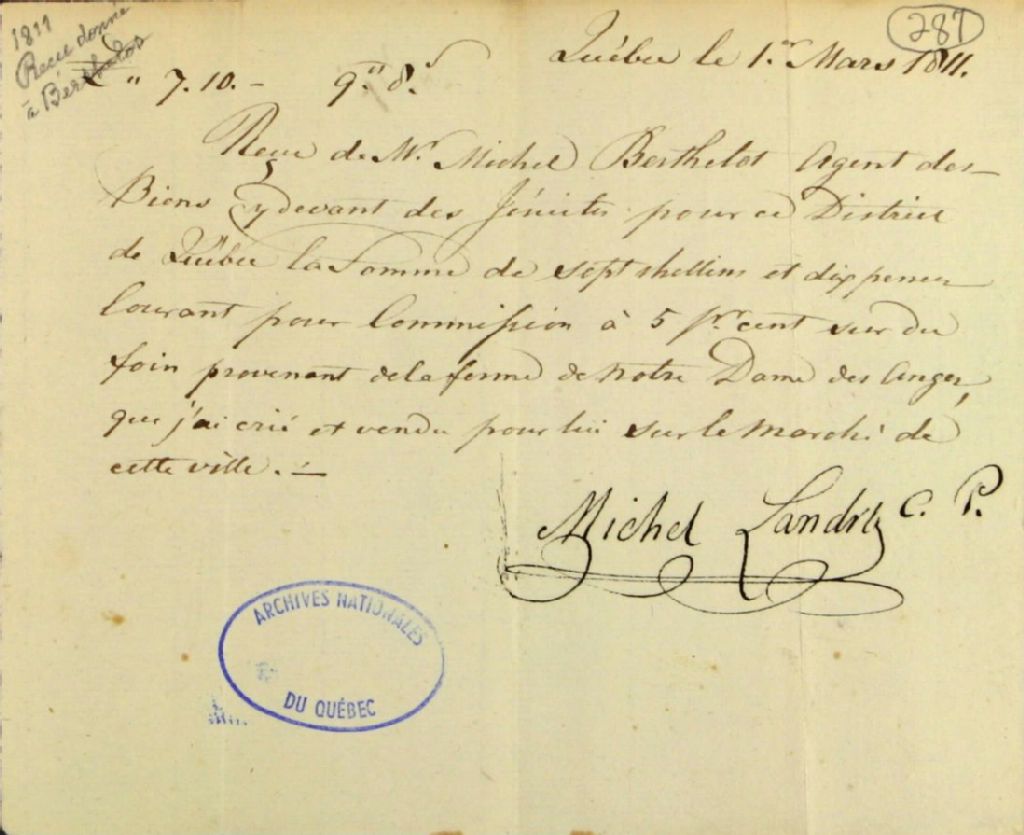 287
1811
Recu donné
à Berthelot
Québec le 1.er Mars 1811.
£ " 7.10.- 9." 8.d
Reçu de Mr. Michel Berthelot Agent des
Biens cydevant des Jésuites pour ce District
de Québec la Somme de sept shellins et dix pences
Courant pour Commission à 5 pr. cent sur du
foin provenant de la ferme de Notre Dame des Anges,
que j'ai crié et vendu pour lui sur le Marché de
cette ville. —
Michel Landry C. P.
ARCHIVES NATIONALES
DU QUÉBEC